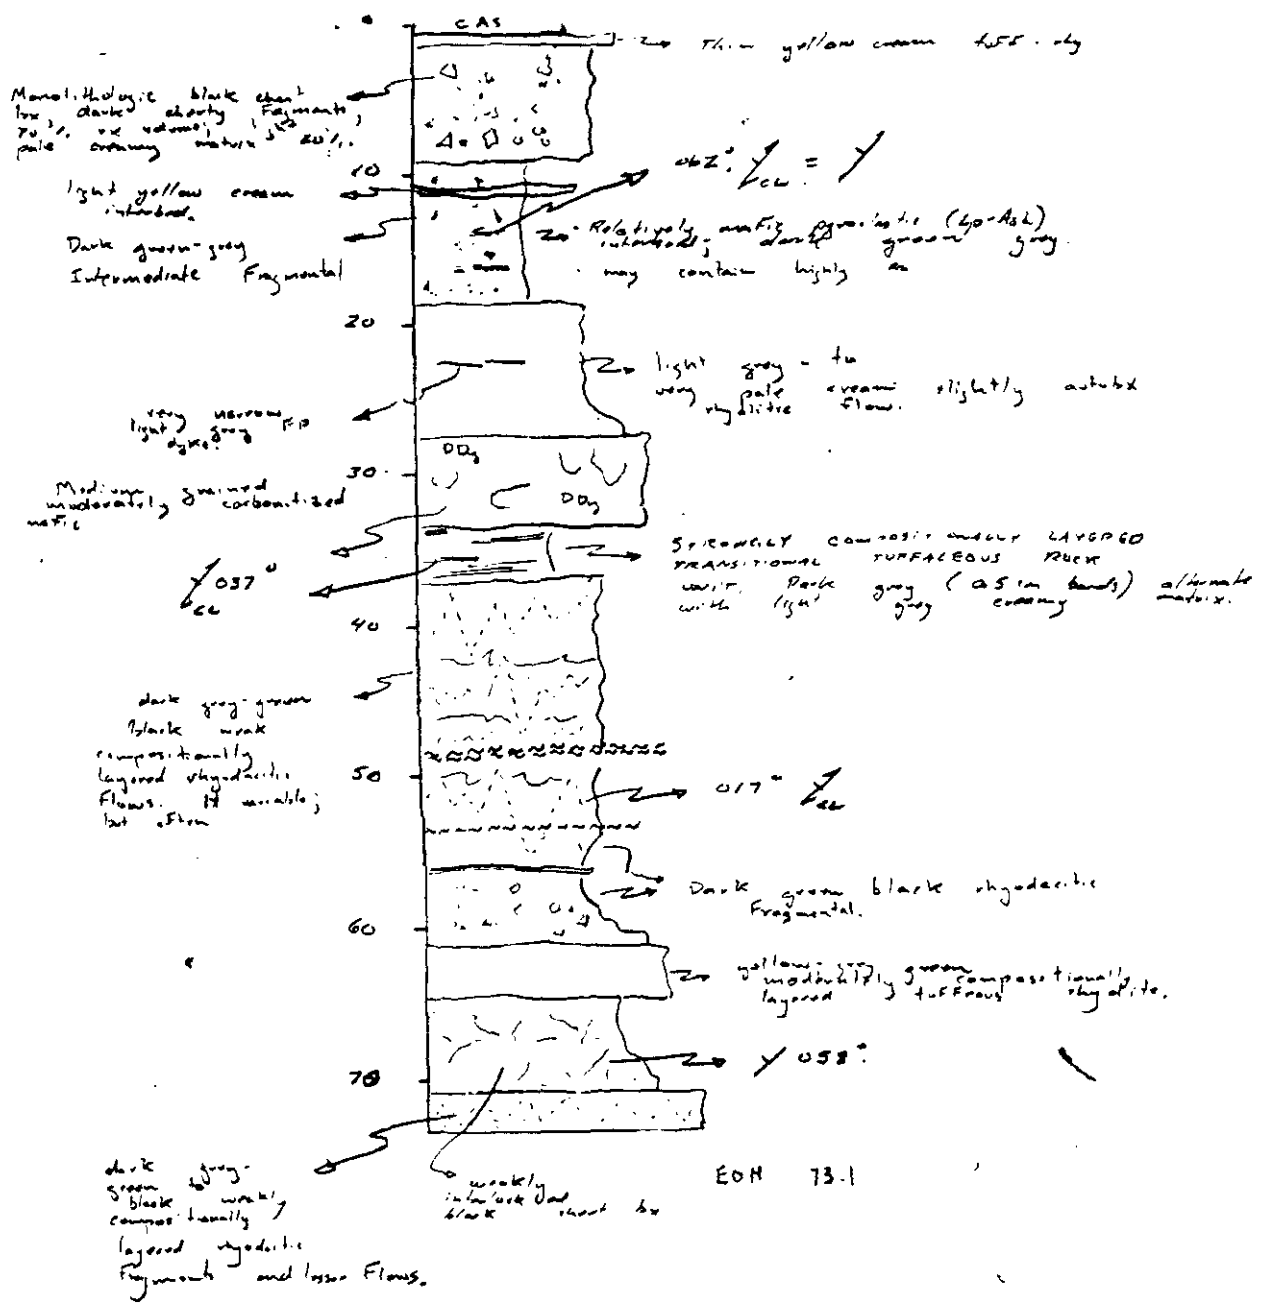 CAS
Thin yellow cream tuff.
Monolithologic black chert
bx, dark cherty fragments,
70% rx volume,
pale creamy matrix 20%.
10
062°
light yellow cream
interbed.
Dark green-grey
Intermediate Fragmental
Relatively mafic pyroclastic (Lp-Ash)
interbed, dark green grey.
may contain highly
20
light grey - to
very pale cream slightly autobx
rhyolite flow.
very narrow
light grey FP
dyke.
DDy
30
DDy
Medium grained
moderately carbonitized
mafic
037°
STRONGLY COMPOSITIONALLY LAYERED
TRANSITIONAL TUFFACEOUS ROCK
UNIT. Dark grey (0.5 cm bands) alternate
with light grey creamy matrix.
40
dark grey-green
black weak
compositionally
layered rhyodacitic
Flows.
but often
50
017°
Dark green black rhyodacitic
Fragmental.
60
yellow-grey green
moderately compositionally
layered tuffrous rhyolite.
70
058°
EOH 73.1
dark grey-
green to
black weakly
compositionally
layered rhyodacitic
Fragments and lesser Flows.
weakly
black chert bx